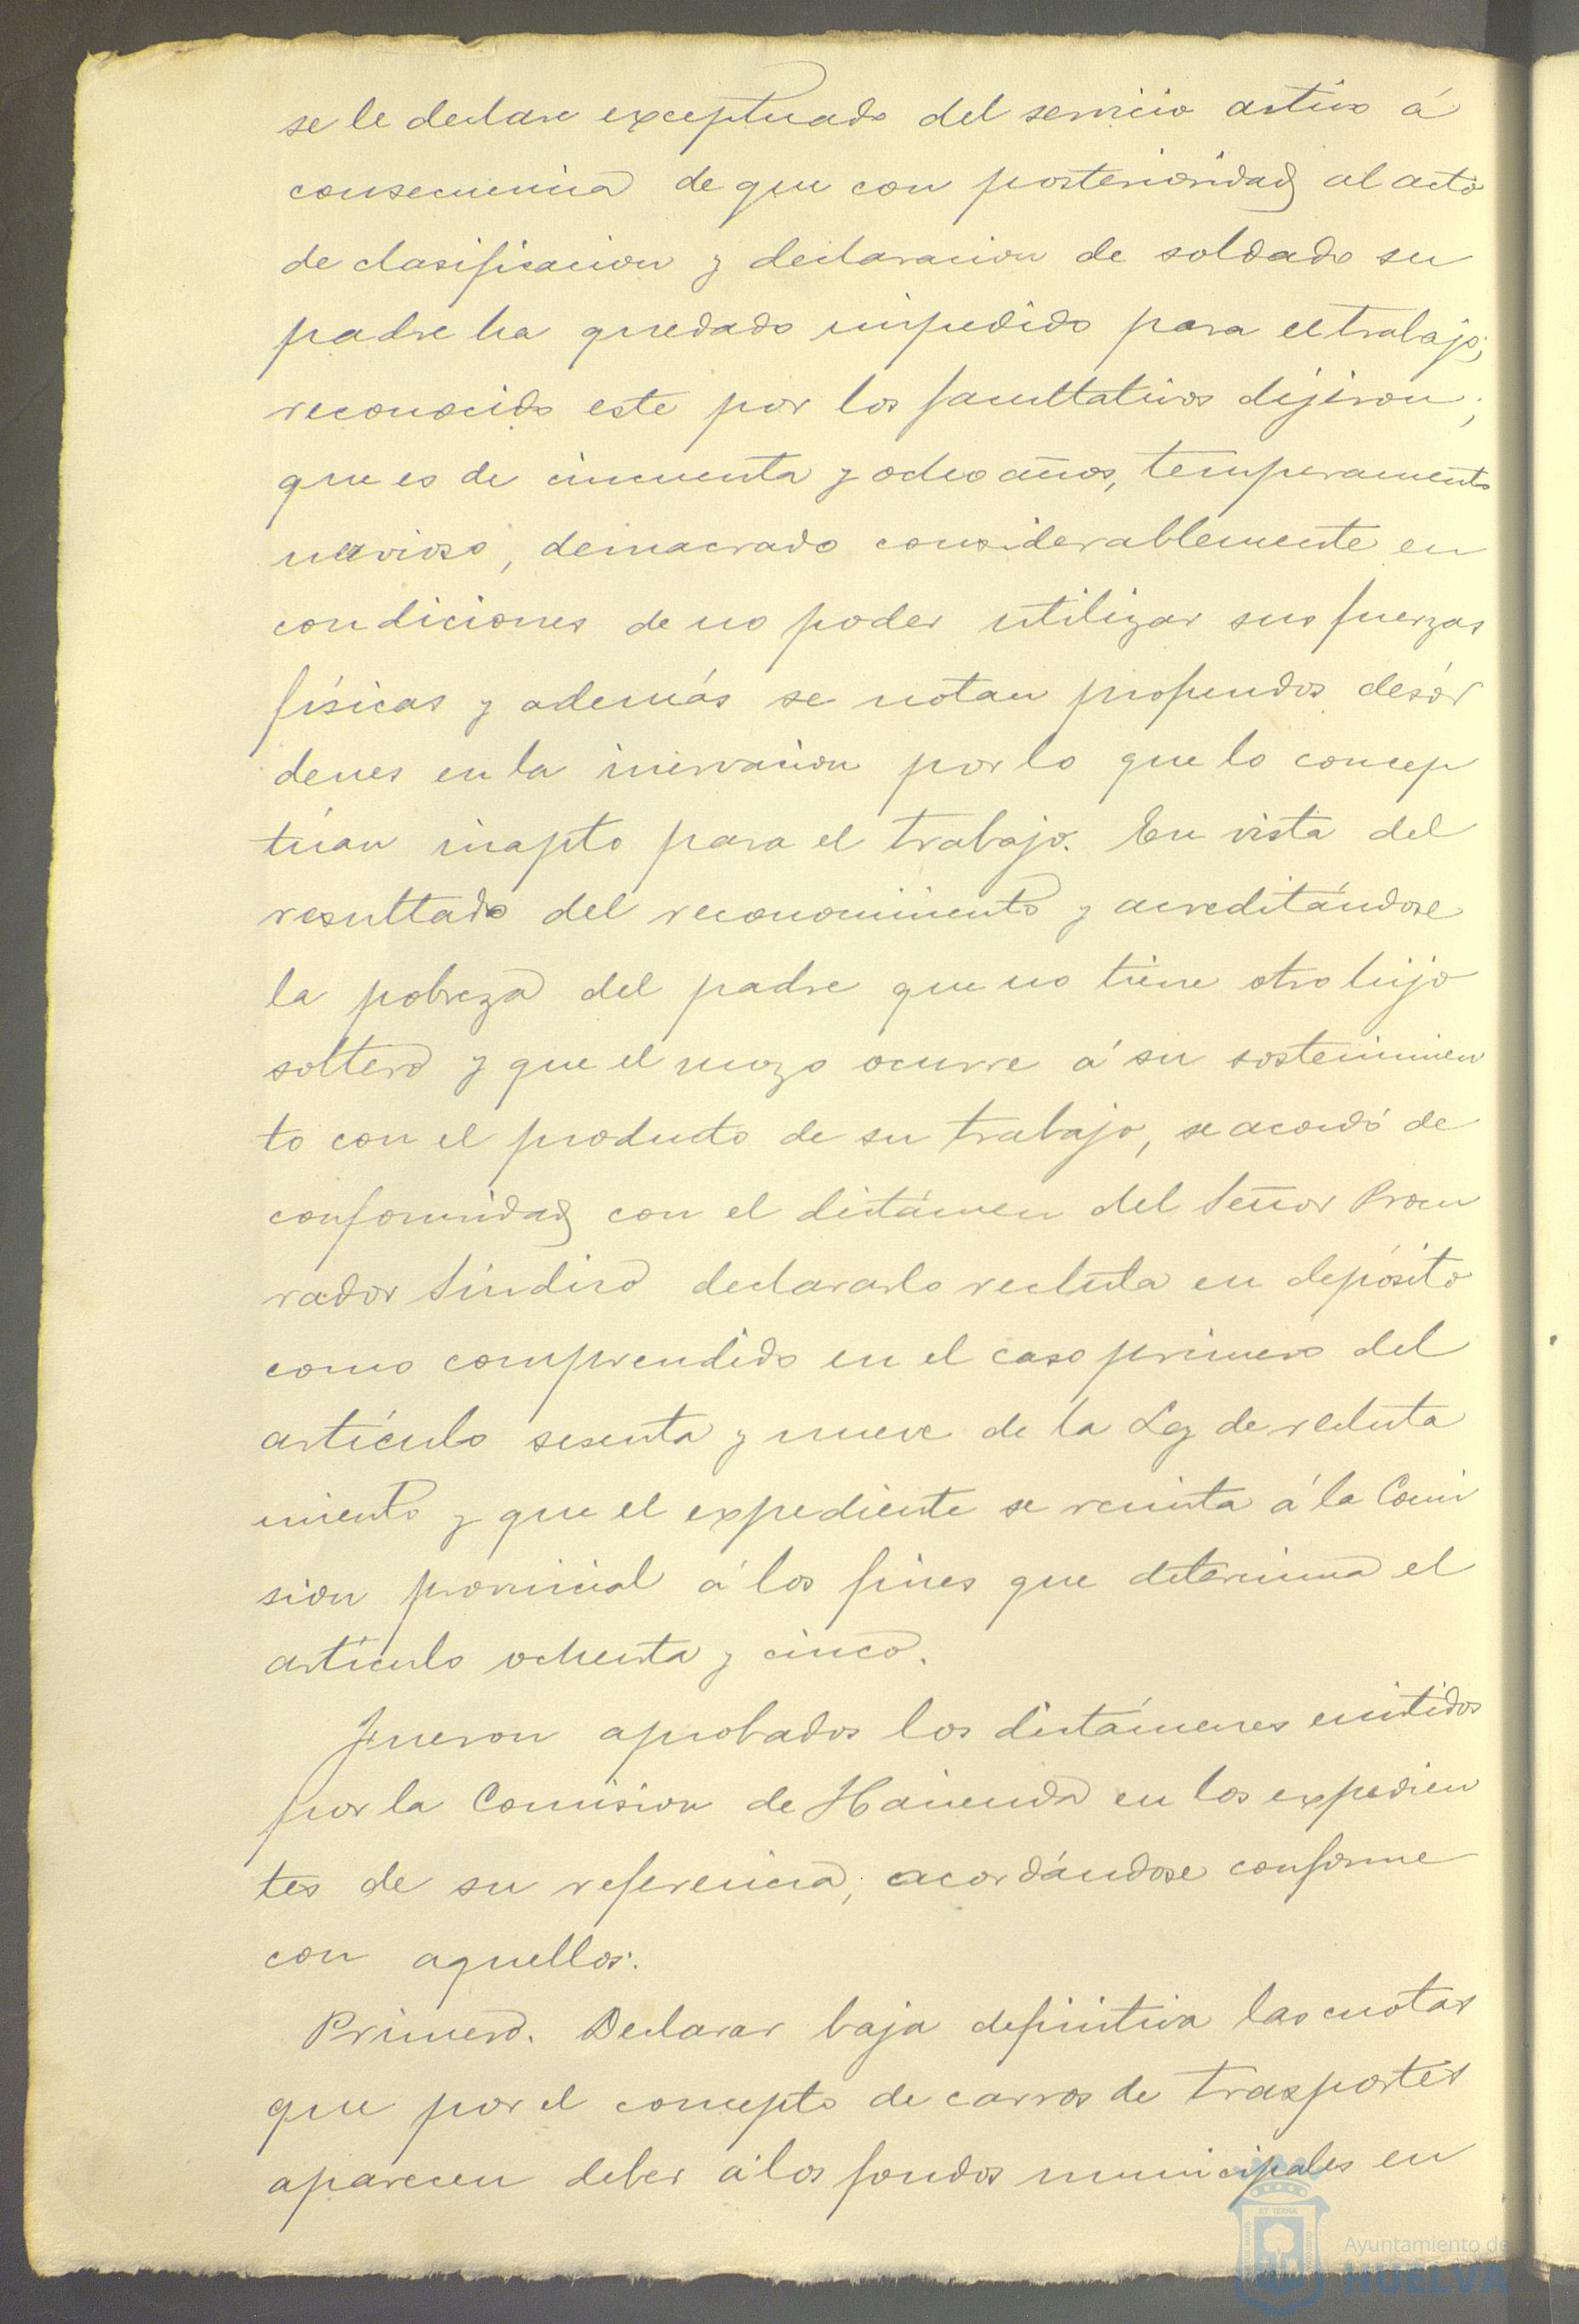 se le declare exceptuado del servicio activo á
consecuencia de que con posterioridad al acto
de clasificacion y declaracion de soldado su
padre ha quedado impedido para el trabajo;
reconocido este por los facultativos dijeron;
que es de cincuenta y ocho años, temperamento
nervioso, demacrado considerablemente en
condiciones de no poder utilizar sus fuerzas
físicas y además se notan profundos desór
denes en la inervacion por lo que lo concep
túan inapto para el trabajo. En vista del
resultado del reconocimiento y acreditándose
la pobreza del padre que no tiene otro hijo
soltero y que el mozo ocurre á su sostenimien
to con el producto de su trabajo, se acordó de
conformidad con el dictámen del Señor Procu
rador Síndico declararlo recluta en depósito
como comprendido en el caso primero del
artículo sesenta y nueve de la Ley de recluta
miento y que el expediente se remita á la Comi
sion provincial á los fines que determina el
artículo ochenta y cinco.
Fueron aprobados los dictámenes emitidos
por la Comision de Hacienda en los expedien
tes de su referencia, acordándose conforme
con aquellos:
Primero. Declarar baja definitiva las cuotas
que por el concepto de carros de trasportes
aparecen deber á los fondos municipales en
Ayuntamiento de
HUELVA